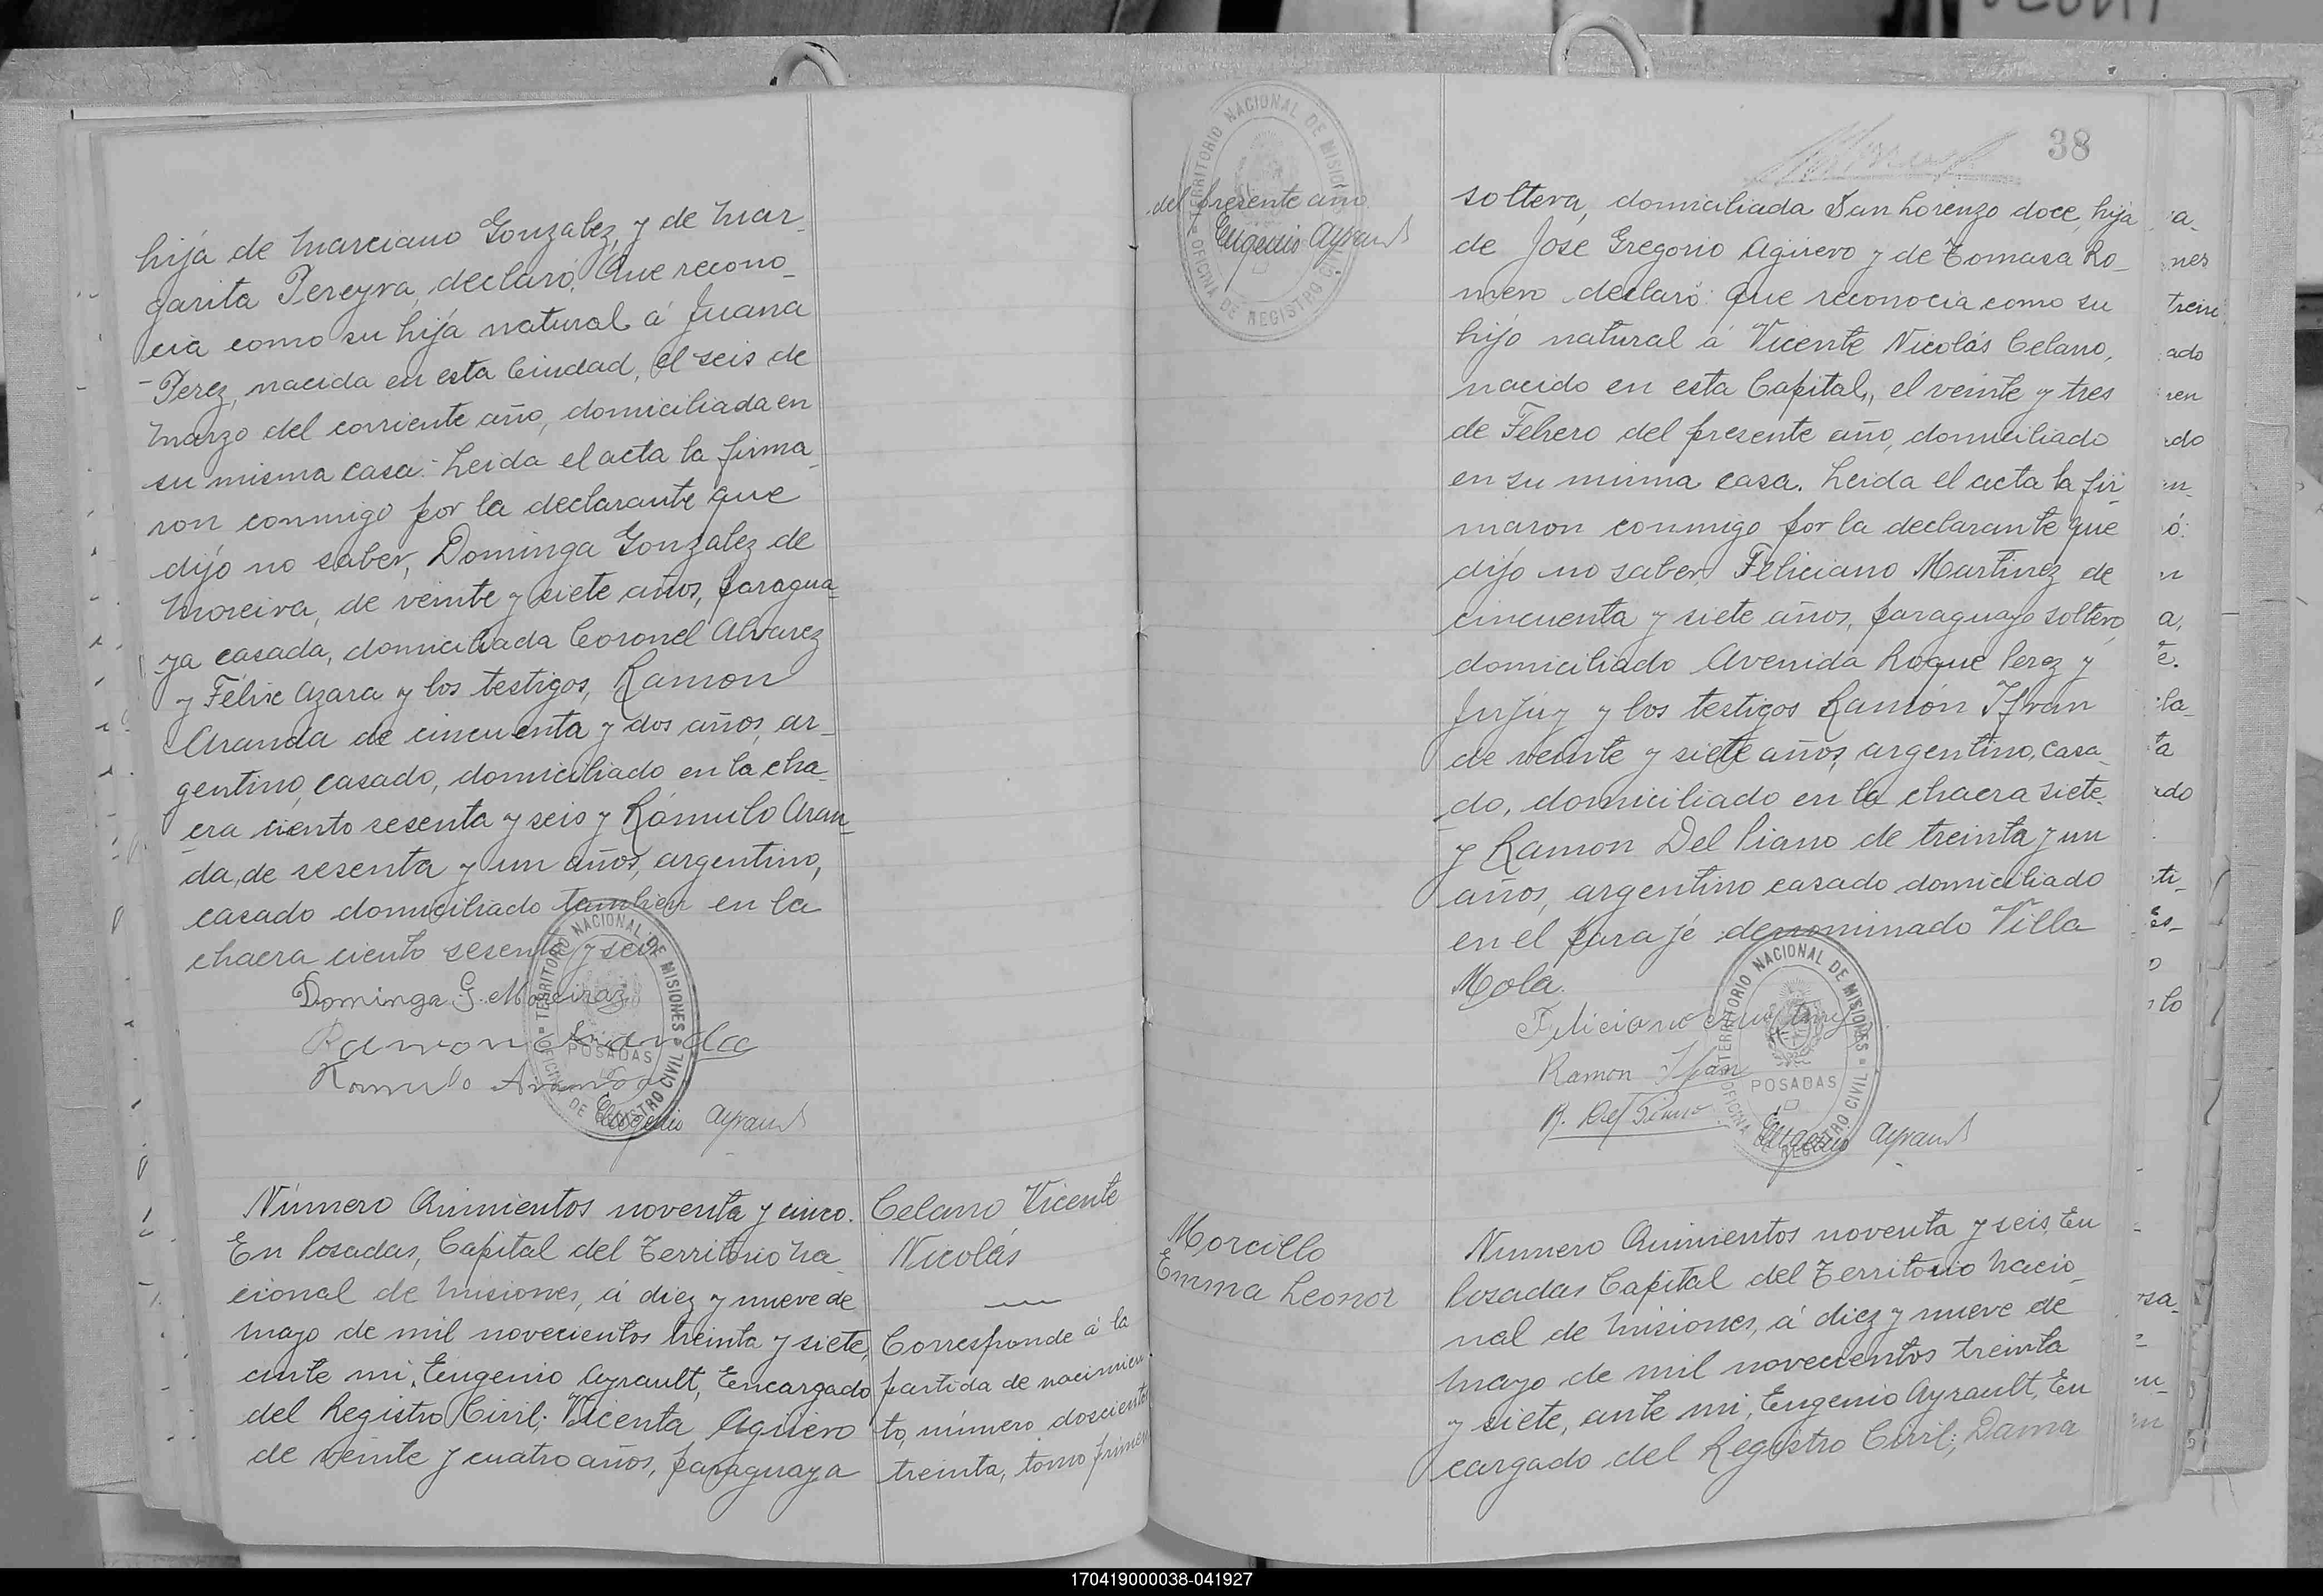 hija de Marciano Gonzalez, y de Mar_
garita Pereyra, declaró: Que recono_
cia como su hija natural á Juana
Perez, nacida en esta Ciudad, el seis de
Marzo del corriente año, domiciliada en
su misma casa. Leida el acta la firma_
ron conmigo por la declarante que
dijo no saber, Dominga Gonzalez de
Moreira, de veinte y siete años, paragua_
ya casada, domiciliada Coronel Alvarez
y Félix Azara y los testigos, Ramon
Aranda de cincuenta y dos años, ar_
gentino, casado, domiciliado en la cha_
cra ciento sesenta y seis y Rómulo Aran_
da, de sesenta y un años, argentino,
casado domiciliado tambien en la
chacra ciento sesenta y seis
Dominga G. Moreiraz
Ramon Aranda
Romulo Aranda
Eugenio Ayrault
TERRITORIO NACIONAL DE MISIONES
OFICINA DE REGISTRO CIVIL
POSADAS
Número Quinientos noventa y cinco.
En Posadas, Capital del Territorio Na_
cional de Misiones, á diez y nueve de
Mayo de mil novecientos treinta y siete,
ante mi, Eugenio Ayrault, Encargado
del Registro Civil; Vicenta Agüero
de veinte y cuatro años, paraguaya
Celano Vicente
Nicolás
Corresponde á la
partida de nacimien
to, número doscientos
treinta, tomo primero
del presente año
Eugenio Ayrault
TERRITORIO NACIONAL DE MISIONES
OFICINA DE REGISTRO CIVIL
38
soltera, domiciliada San Lorenzo doce, hija
de José Gregorio Agüero y de Tomasa Ro_
mero declaró: Que reconocia como su
hijo natural á Vicente Nicolás Celano,
nacido en esta Capital, el veinte y tres
de Febrero del presente año, domiciliado
en su misma casa. Leida el acta la fir_
maron conmigo por la declarante que
dijo no saber, Feliciano Martinez de
cincuenta y siete años, paraguayo soltero,
domiciliado Avenida Roque Perez y
Jujúy y los testigos Ramón Ifran
de veinte y siete años, argentino, casa_
do, domiciliado en la chacra siete
y Ramon Del Piano de treinta y un
años, argentino casado domiciliado
en el paraje denominado Villa
Mola.
Feliciano Martinez
Ramon Ifran
R. Del Piano
Eugenio Ayrault
TERRITORIO NACIONAL DE MISIONES
OFICINA DE REGISTRO CIVIL
POSADAS
Morcillo
Emma Leonor
Numero Quinientos noventa y seis, En
Posadas Capital del Territorio Nacio_
nal de Misiones, á diez y nueve de
Mayo de mil novecientos treinta
y siete, ante mi, Eugenio Ayrault, En
cargado del Registro Civil; Dama
170419000038-041927